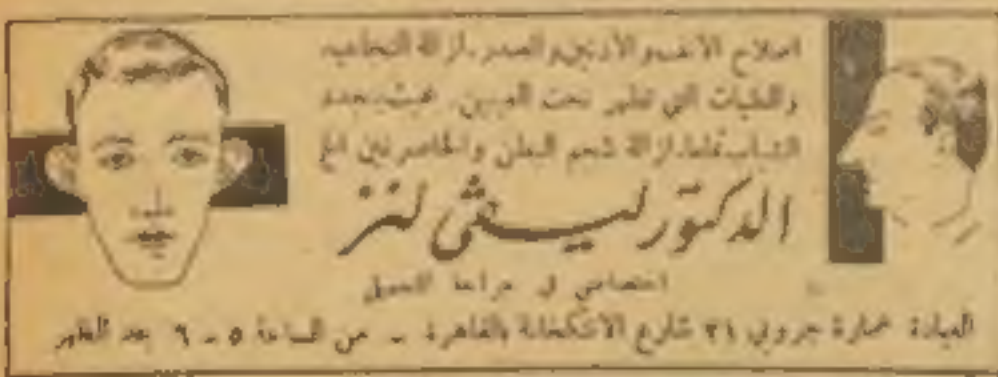 اصلاح الأنف والأذنين والصدر. ازالة التجاعيد
والطيات التي تظهر تحت العينين.
الشباب ازالة شحم البطن والخاصرتين الخ
الدكتور ليڤي لنز
اختصاصي في جراحة التجميل
العيادة عمارة جروبي ٢١ شارع الانتكخانة بالقاهرة ـ من الساعة ٥ ـ ٩ بعد الظهر